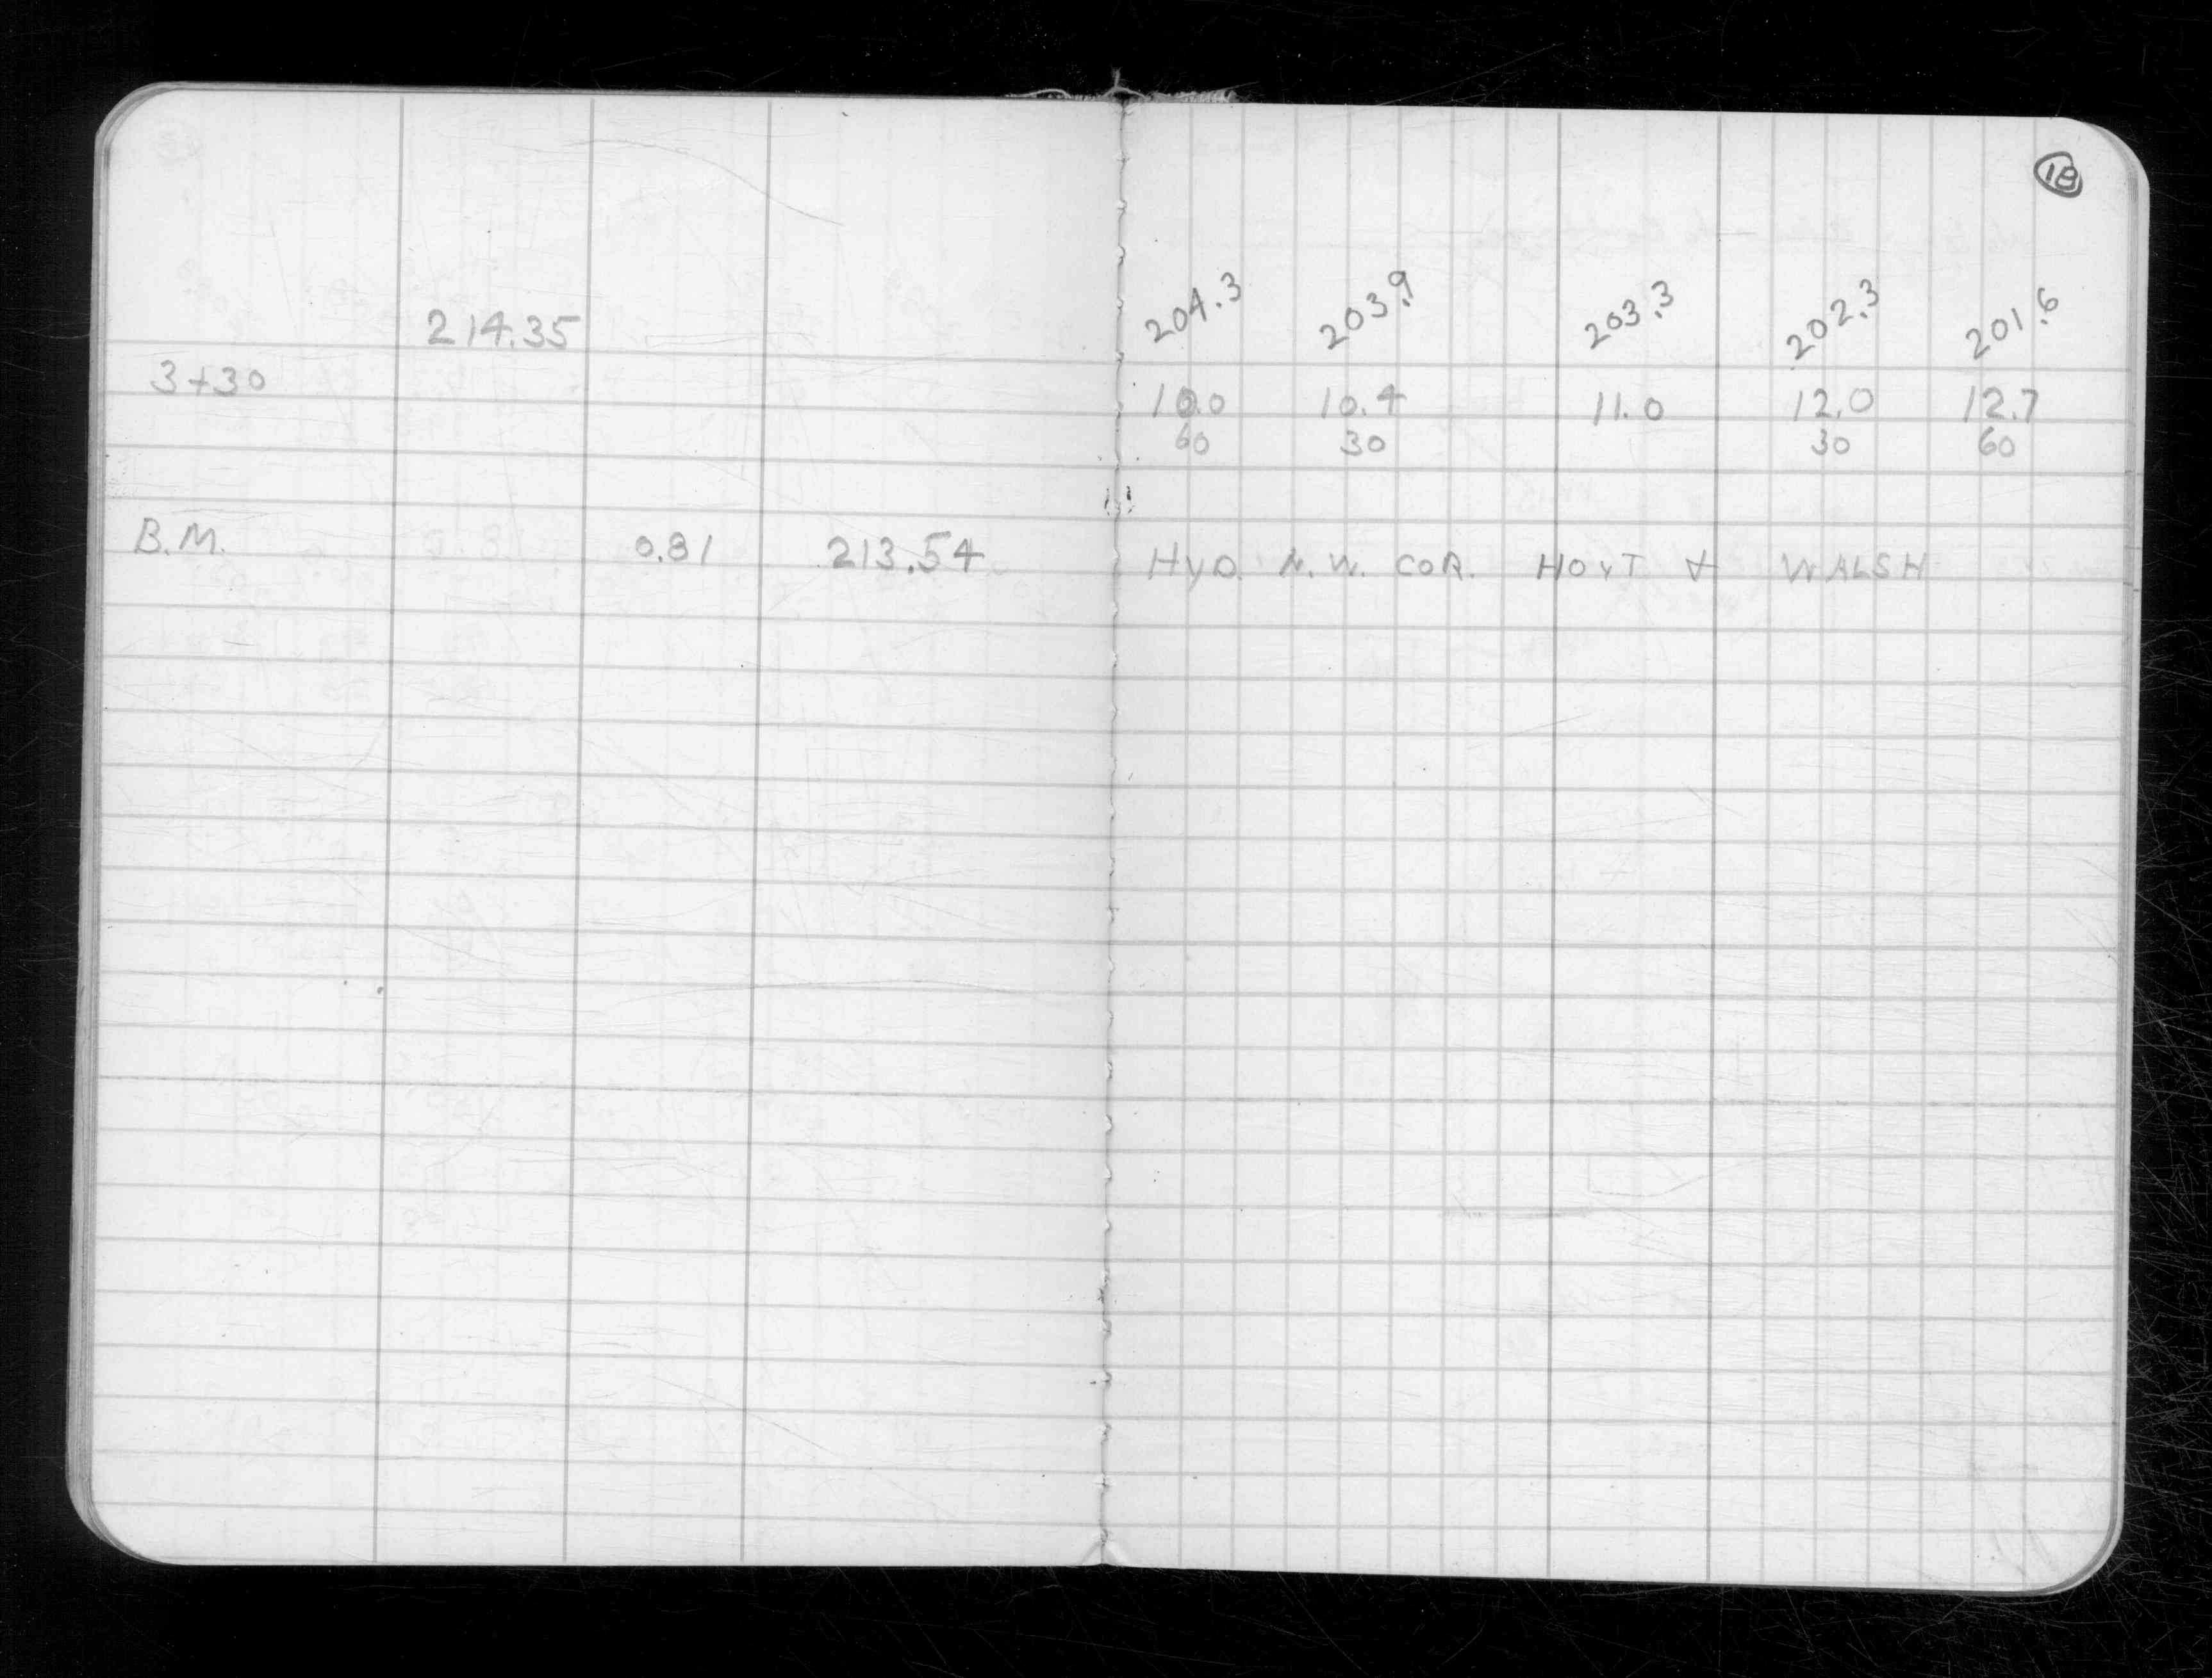 18
214.35 204.3 203.9 203.3 202.3 201.6
3+30 10.0 10.4 11.0 12.0 12.7
60 30 30 60
B.M. 0.81 213.54 HYD. N.W. COR. HOYT & WALSH